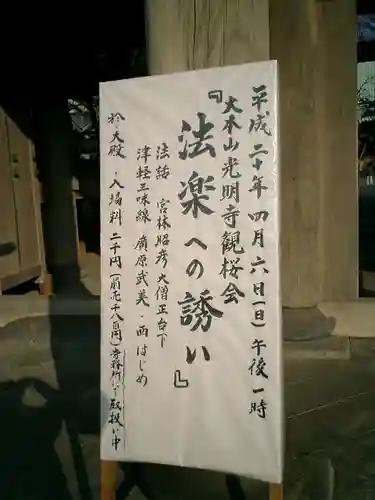 平成二十年四月六日(日)午後一時
大本山光明寺観桜会
『法楽への誘い』
法話 宮林昭彦大僧正台下
津軽三味線 廣原武美・西はじめ
於・大殿・入場料二千円(前売千八百円)寺務所にて取扱い中